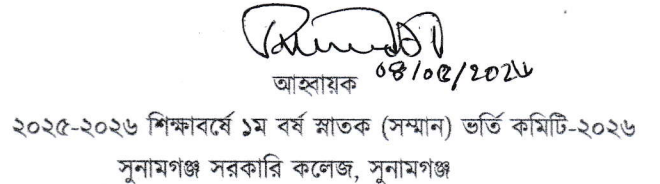 ০৪/০৫/২০২৬
আহবায়ক
২০২৫-২০২৬ শিক্ষাবর্ষে ১ম বর্ষ স্নাতক (সম্মান) ভর্তি কমিটি-২০২৬
সুনামগঞ্জ সরকারি কলেজ, সুনামগঞ্জ